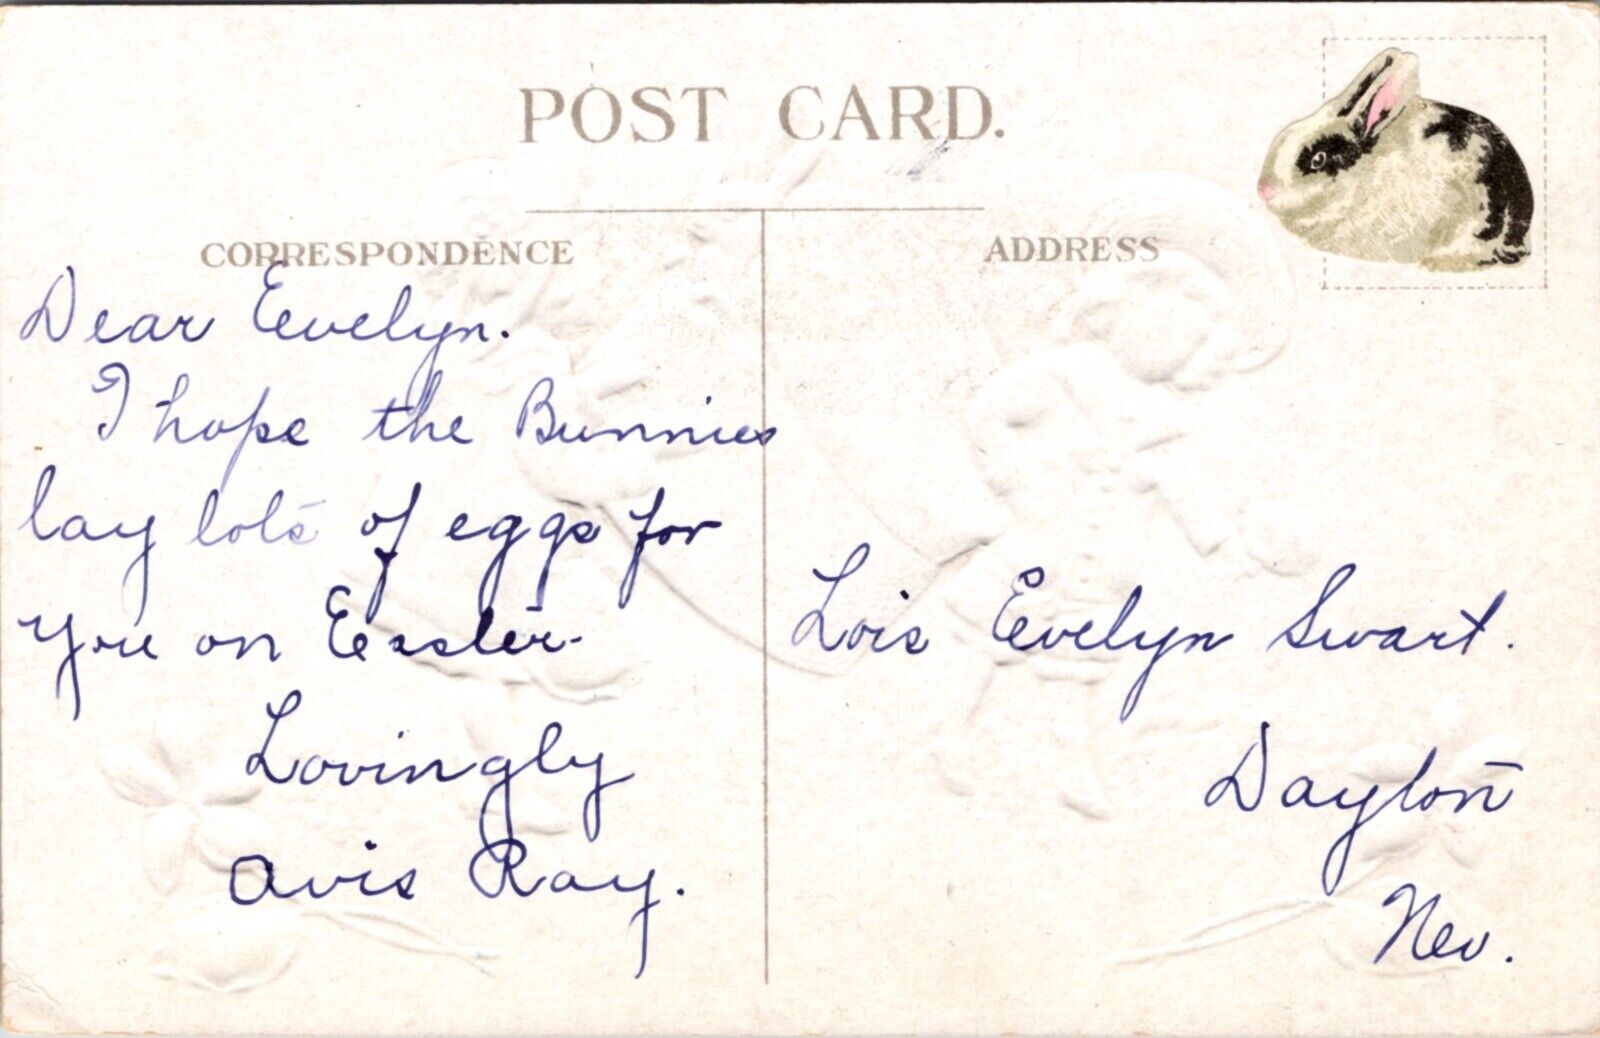 POST CARD.
CORRESPONDENCE
ADDRESS
Dear Evelyn.
I hope the Bunnies
lay lots of eggs for
you on Easter-
Lovingly
Avis Ray.
Lois Evelyn Swart.
Dayton
Nev.